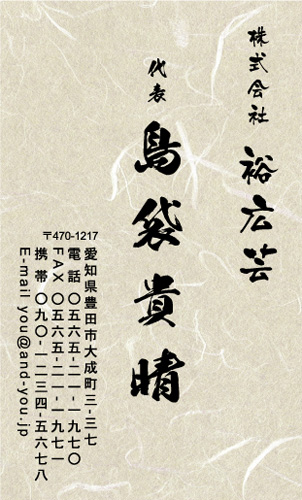 株式会社
裕広芸
代表
島袋貴晴
〒470-1217
愛知県豊田市大成町三-三七
電話 〇五六五-二一-一九七〇
FAX 〇五六五-二一-一九七一
携帯 〇九〇-一二三四-五六七八
E-mail you@and-you.jp